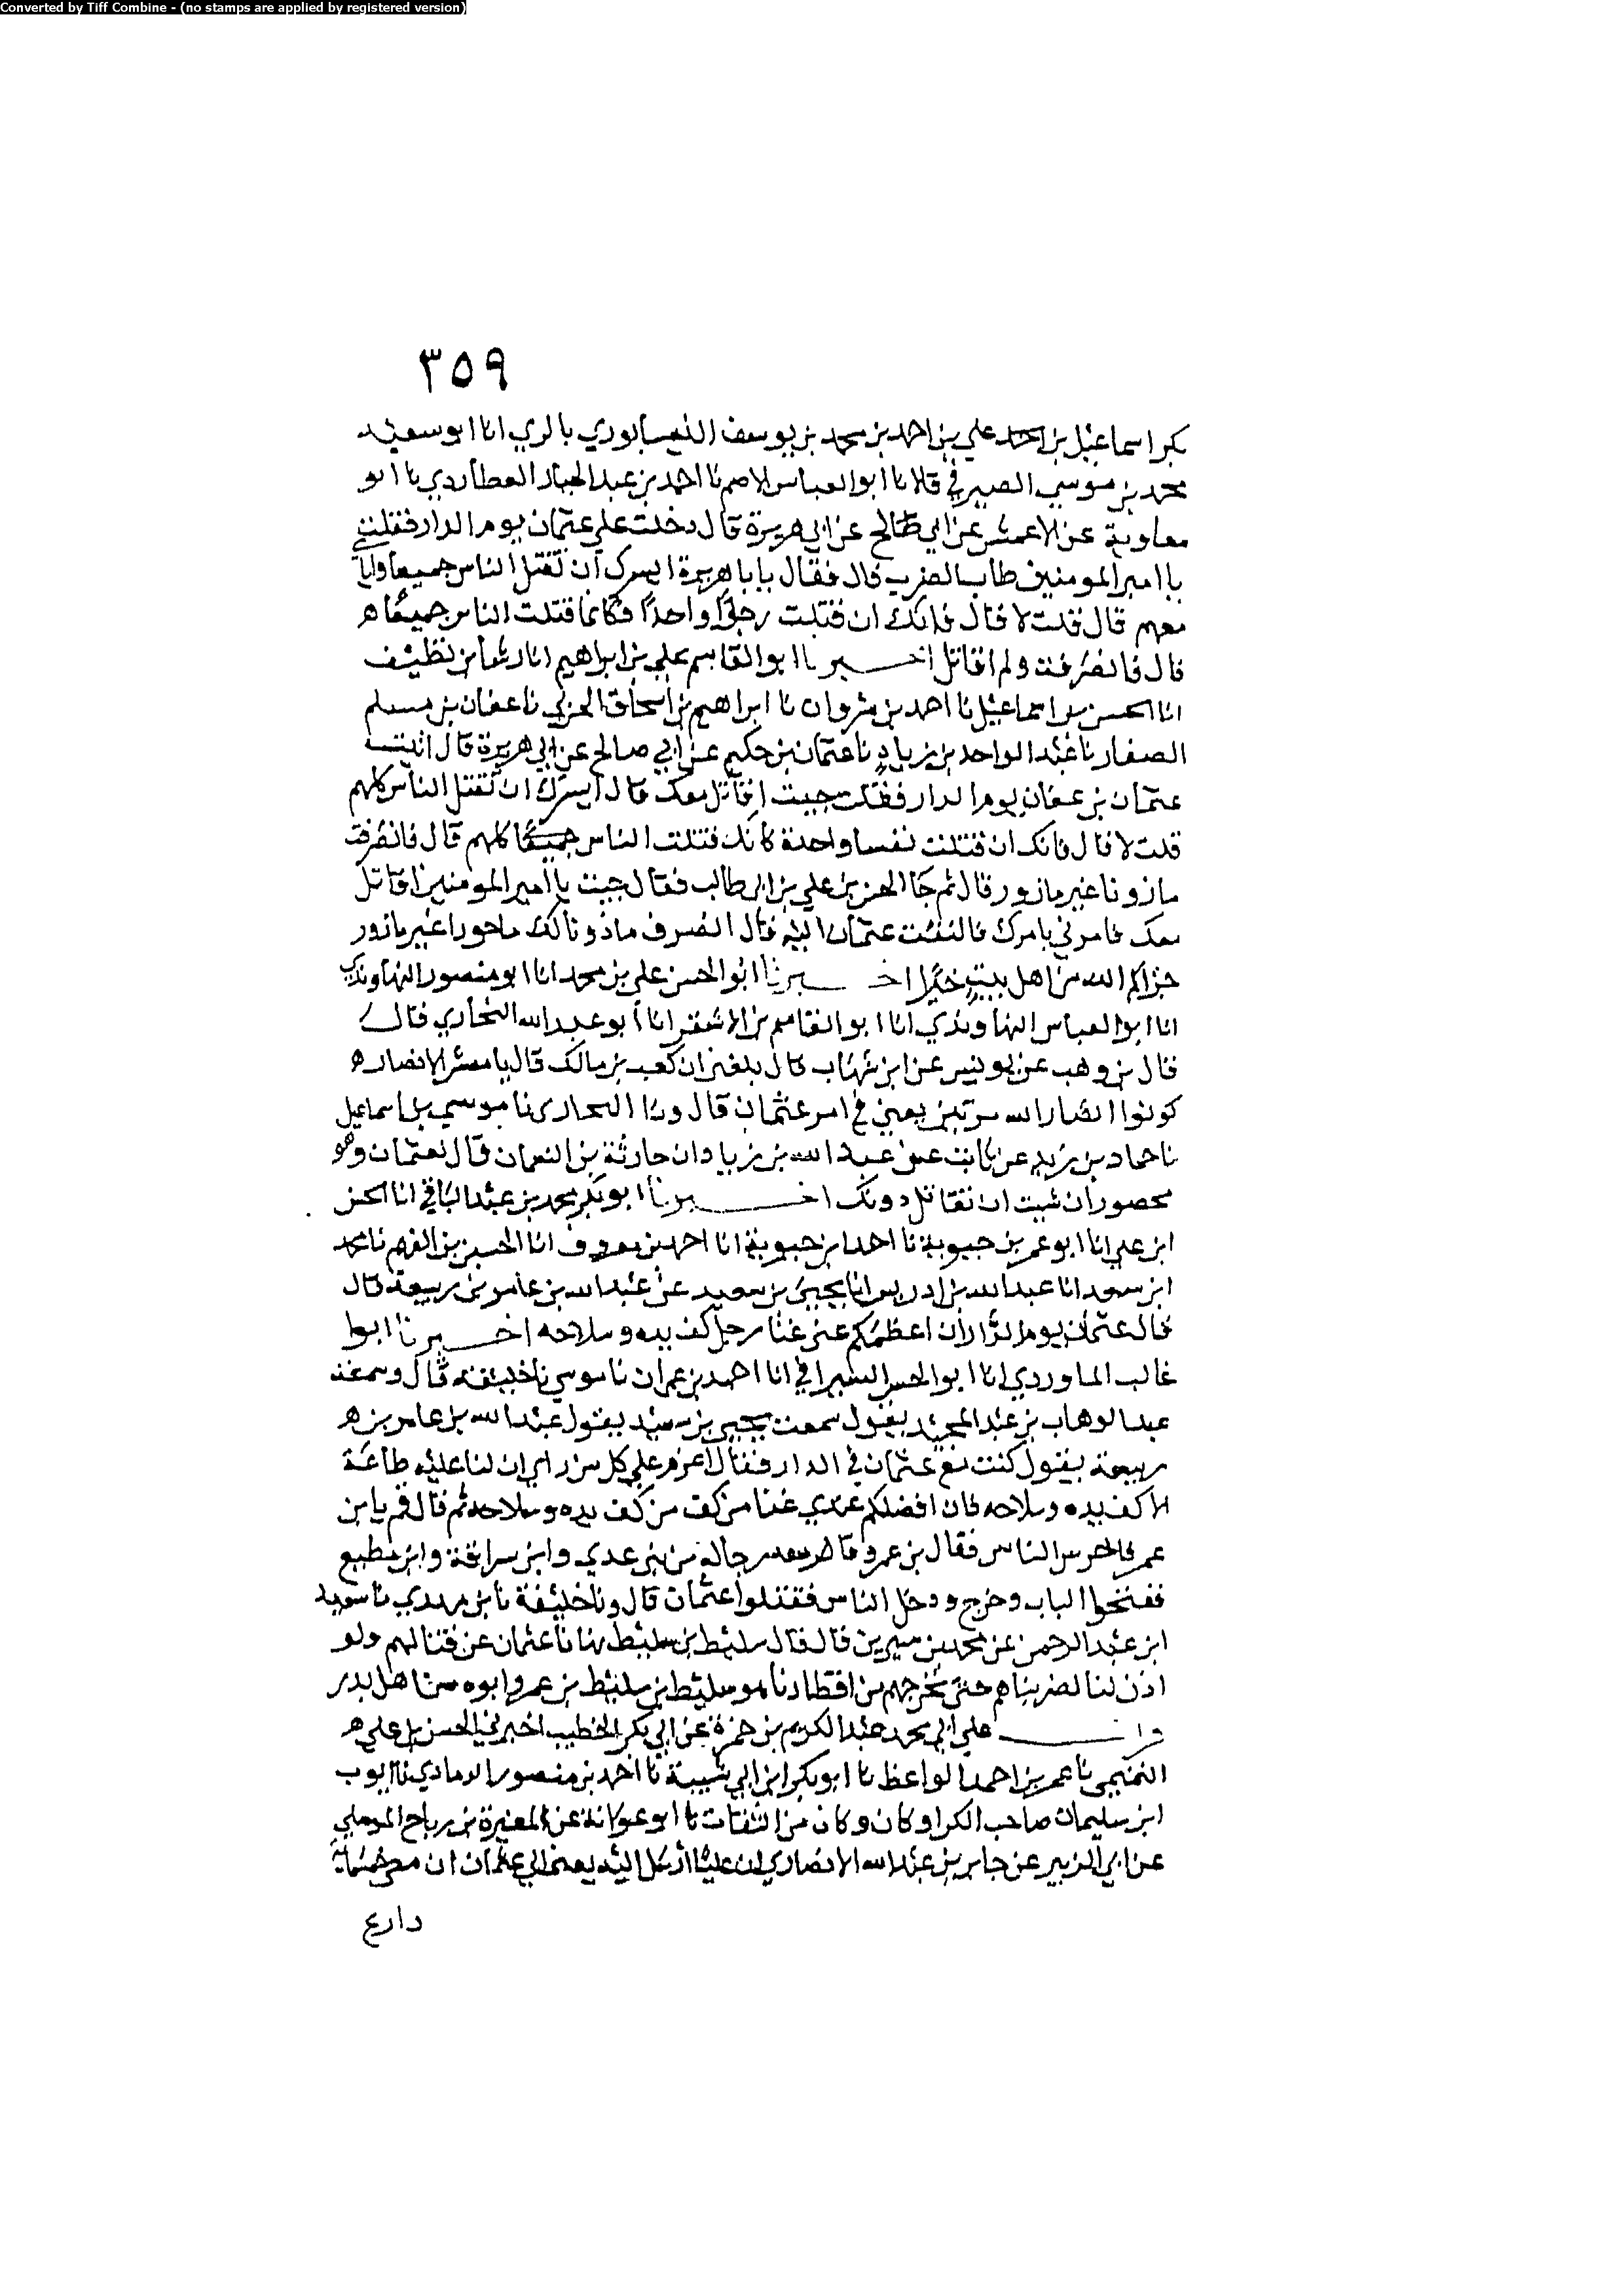 Converted by Tiff Combine - (no stamps are applied by registered version)
٣٥٩
بكر اسماعيل بن احمد علي بن احمد بن محمد بن يوسف النيسابوري بالري انا ابو سعيد
محمد بن موسي الصيرفي قالا نا ابو العباس الاصم نا احمد بن عبد الجبار العطاردي نا ابو
معاوية عن الاعمش عن ابي صالح عن ابي هريرة قال دخلت علي عثمان يوم الدار فقلت
يا امير المومنين طاب الضرب قال فقال يا با هريرة ايسرك ان تقتل الناس جميعا واياي
معهم قال قلت لا قال فانك ان قتلت رجلا واحدا فكانما قتلت الناس جميعا ه
قال فانصرفت ولم اقاتل اخبرنا ابو القاسم علي بن ابراهيم انا رشا بن نظيف
انا الحسن بن اسماعيل نا احمد بن مروان نا ابراهيم بن اسحاق الحربي نا عفان بن مسلم
الصفار نا عبد الواحد بن زياد نا عثمان بن حكيم عن ابي صالح عن ابي هريرة قال اتيت
عثمان بن عفان يوم الدار فقلت جيت اقاتل معك قال ايسرك ان تقتل الناس كلهم
قلت لا قال فانك ان قتلت نفسا واحدة كانك قتلت الناس جميعا كلهم قال فانصرفت
ماذونا غير مازور قال ثم جا الحسن بن علي بن ابي طالب فقال جيت يا امير المومنين اقاتل
معك فامرني بامرك فالتفت عثمان اليه فقال انصرف ماذونا لك ماجورا غير مازور
جزاكم الله من اهل بيت خيرا اخبرنا ابو الحسن علي بن محمد انا ابو منصور النهاوندي
انا ابو العباس النهاوندي انا ابو القاسم بن الاشقر انا ابو عبد الله البخاري قال
قال بن وهب عن يونس عن ابن شهاب قال بلغني ان كعب بن مالك قال يا معشر الانصار ه
كونوا انصار الله مرتين يعني في امر عثمان قال ونا البخاري نا موسي بن اسماعيل
نا حماد بن زيد عن ثابت عن عبد الله بن زياد ان حارثة بن النعمان قال لعثمان وهو
محصور ان شيت ان نقاتل دونك اخبرنا ابو بكر محمد بن عبد الباقي انا الحسن
ابن علي انا ابو عمر بن حيوية نا احمد بن حيوية انا احمد بن معروف انا الحسين بن الفهم نا محمد
ابن سعد انا عبد الله بن ادريس انا يحيي بن سعيد عن عبد الله بن عامر بن ربيعة قال
قال عثمان يوم الدار ان اعظمكم عني غنا رجل كف يده وسلاحه اخبرنا ابوا
غالب الماوردي انا ابو الحسن السيرافي انا احمد بن عمران نا موسي نا خليفة قال وسمعت
عبد الوهاب بن عبد المجيد يقول سمعت يحيي بن سعيد يقول عبد الله بن عامر بن ه
ربيعة يقول كنت مع عثمان في الدار فقال اعزم علي كل من راي ان لنا عليه طاعة
الا كف يده وسلاحه فان افضلكم عندي غنا من كف من كف يده وسلاحه ثم قال قم يا بن
عمر فاحرس الناس فقال بن عمر وقام معه رجالة من بني عدي وابن سراقة وابن مطيع
ففتحوا الباب وخرج ودخل الناس فقتلوا عثمان قال ونا خليفة نا بن مهدي نا سعيد
ابن عبد الرحمن عن محمد بن سيرين قال قال سليط بن سليط نهانا عثمان عن قتالهم ولو
اذن لنا لضربناهم حتي نخرجهم من اقطارنا هو سليط بن سليط بن عمرو ابوه من اهل بدر
قرات علي ابي محمد عبد الكريم بن حمزة عن ابي بكر الخطيب اخبرني الحسن بن علي ه
التميمي نا عمر بن احمد الواعظ نا ابو بكر ابن ابي شيبة نا احمد بن منصور الرمادي نا ايوب
ابن سليمان صاحب الكرا وكان وكان من الثقات نا ابو عوانة عن المغيرة بن رباح الموصلي
عن ابي الزبير عن جابر بن عبد الله الانصاري ان عليا ارسل اليه يعني الي عثمان ان معي خمسماية
دارع